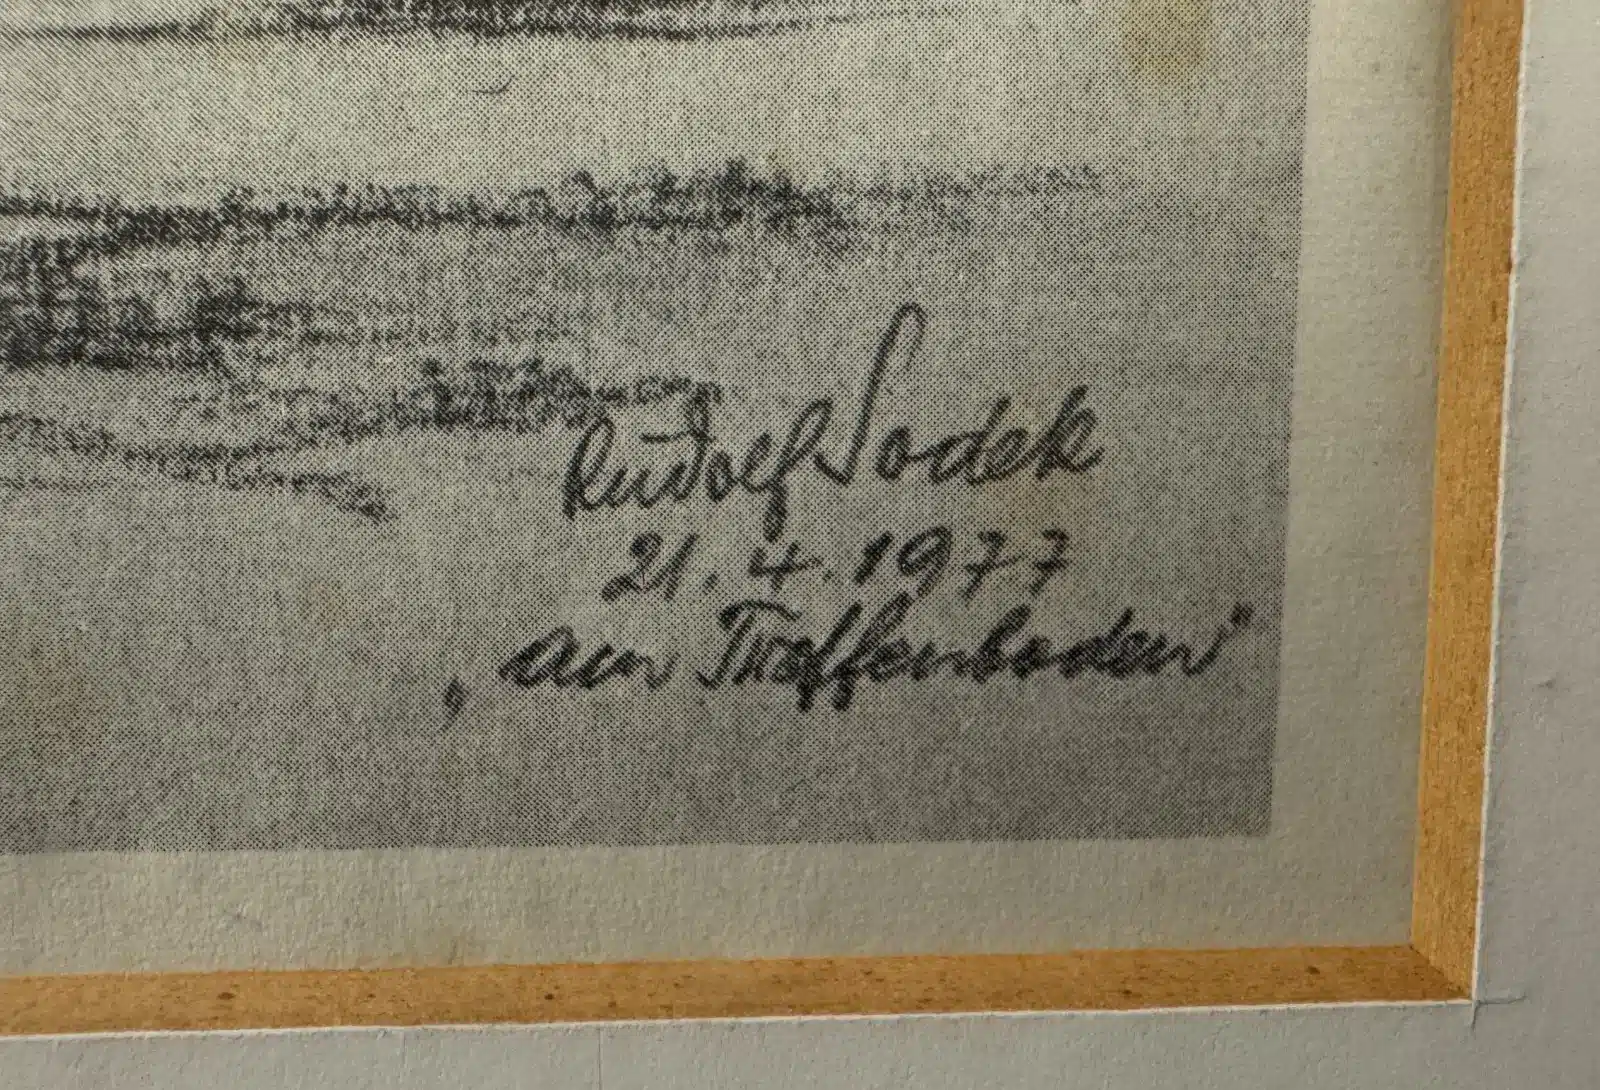 Rudolf Sodek
21.4.1977
„am Treffenboden"